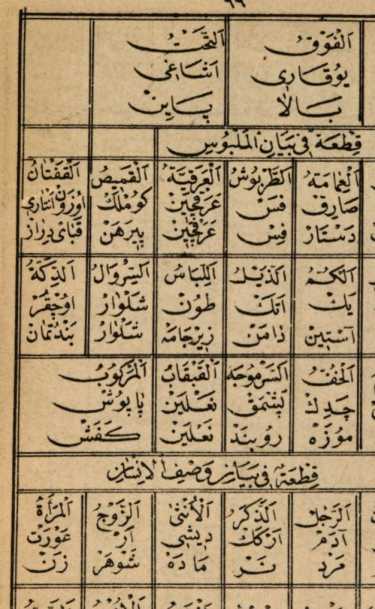 الفوق
يوقارى
بالا
التحت
اشاغى
پايين
قطعة فى بيان الملبوس
العمامة
صارق
دستار
الطربوش
فس
فس
العرقية
عرقچين
عرقچين
القميص
كوملك
پيرهن
القفتان
اوزون انتارى
قباى دراز
الكم
يك
آستين
الذيل
اتك
دامن
اللباس
طون
زيرجامه
السروال
شلوار
شلوار
الدكة
اوچقر
بندتمان
الخف
چدك
موزه
السرموجه
پشمق
روبند
القبقاب
نعلين
نعلين
المركوب
پاپوش
كفش
قطعة فى بيان وصف الانسان
الرجل
آدم
مرد
الذكر
اركك
نر
الأنثى
ديشى
ماده
الزوج
ار
شوهر
المرأة
عورت
زن